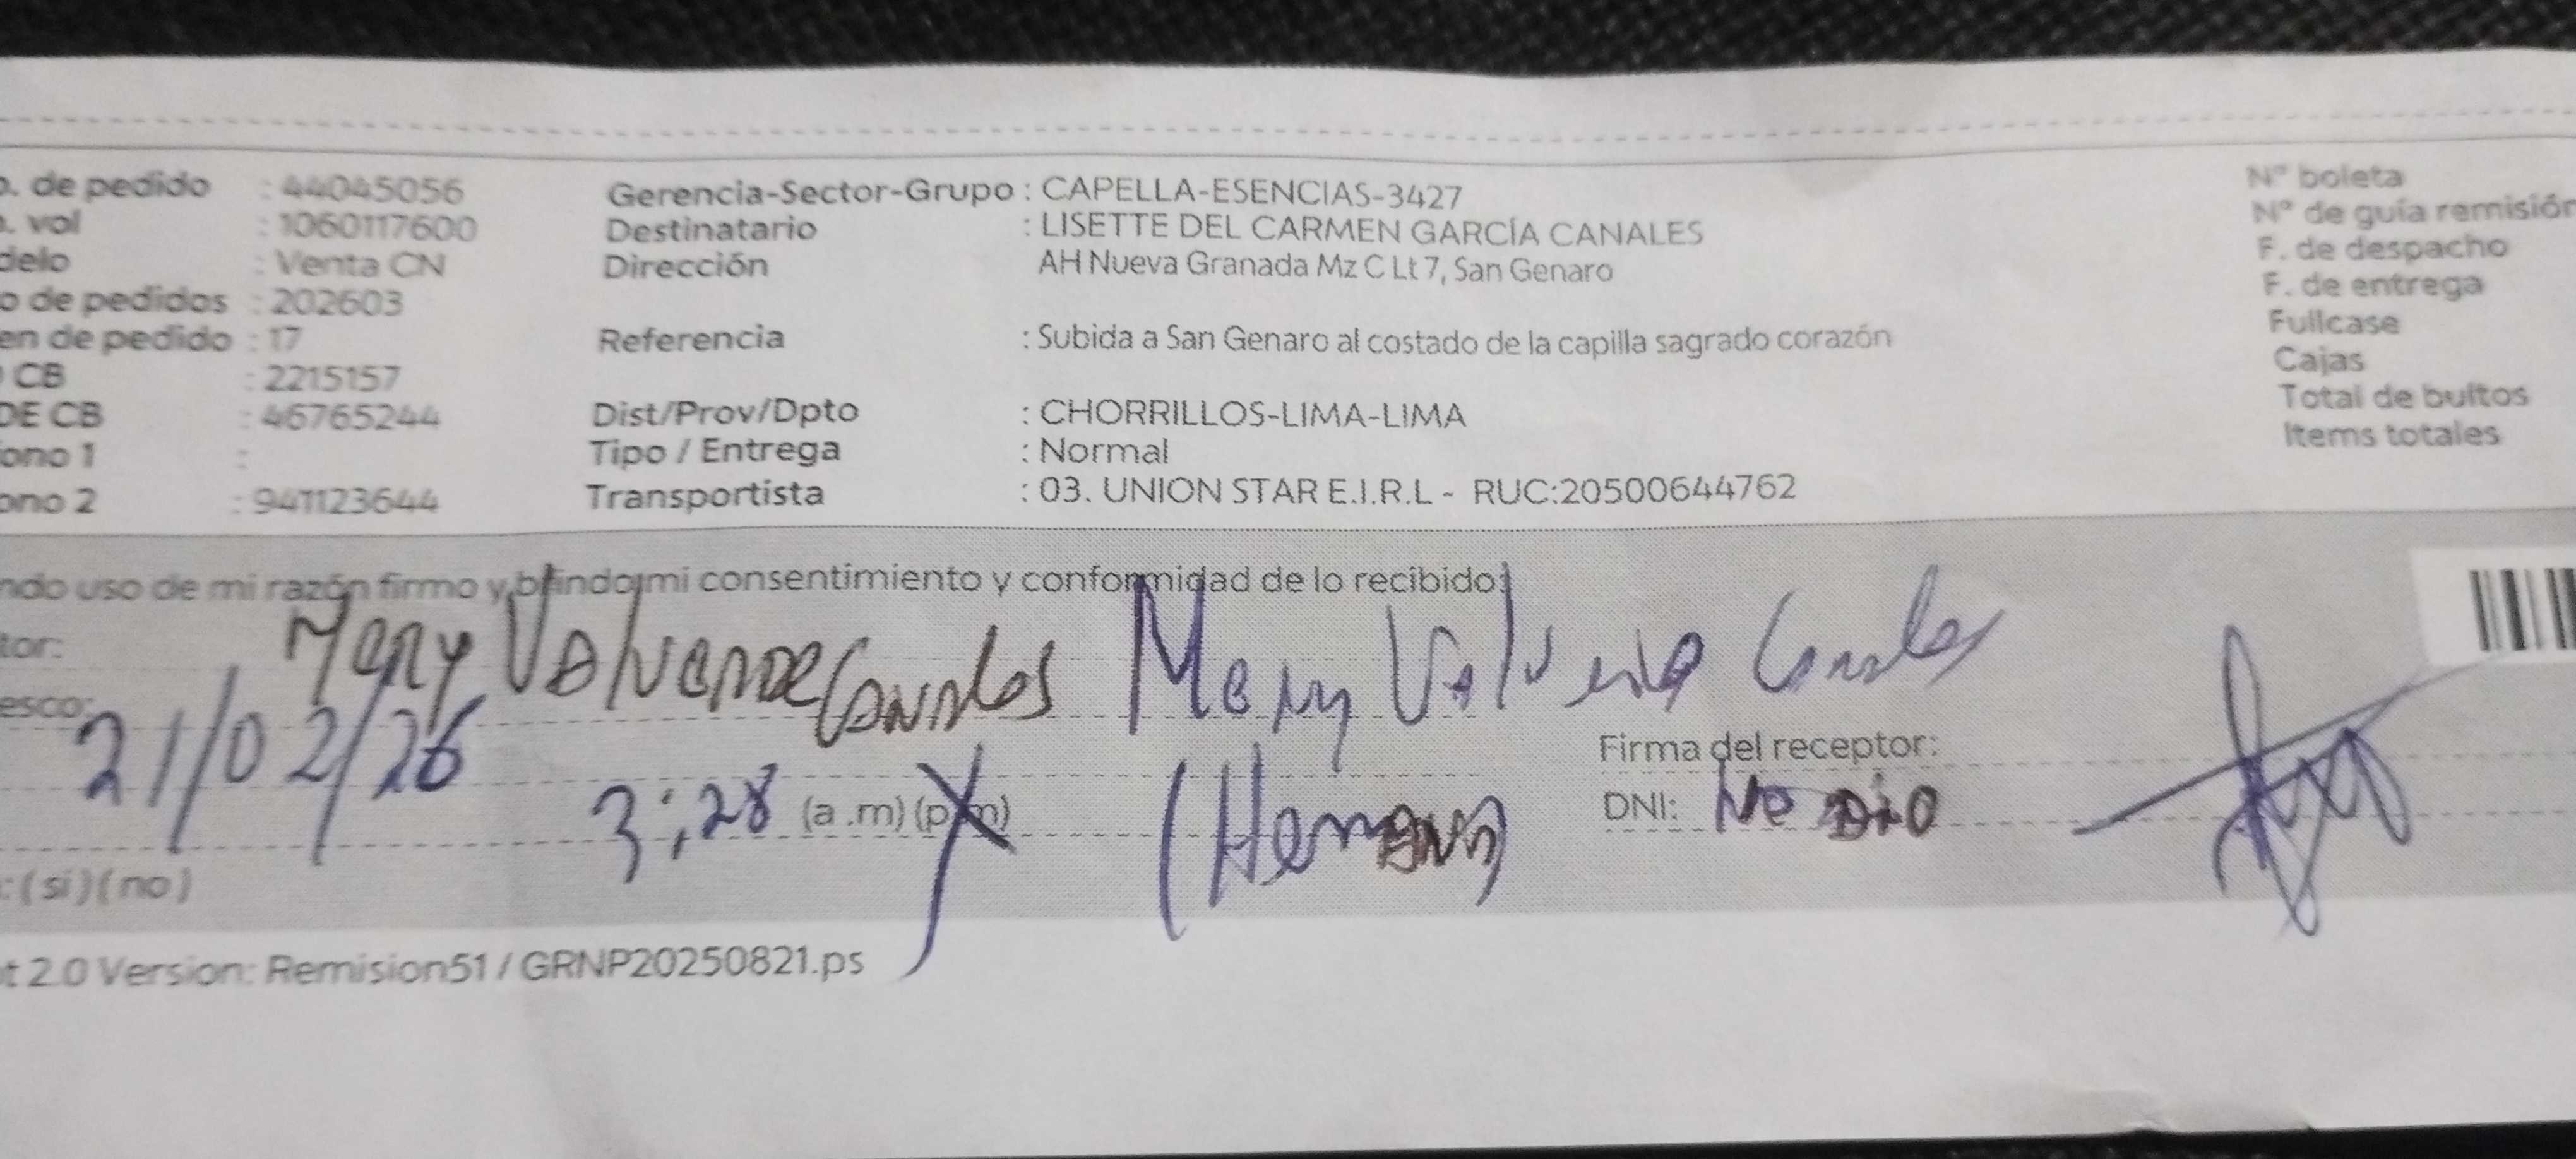 o. de pedido : 44045056 Gerencia-Sector-Grupo : CAPELLA-ESENCIAS-3427 N° boleta
o. vol : 1060117600 Destinatario : LISETTE DEL CARMEN GARCÍA CANALES N° de guía remisión
delo : Venta CN Dirección AH Nueva Granada Mz C Lt 7, San Genaro F. de despacho
o de pedidos : 202603 F. de entrega
en de pedido : 17 Referencia : Subida a San Genaro al costado de la capilla sagrado corazón Fullcase
CB : 2215157 Cajas
DE CB : 46765244 Dist/Prov/Dpto : CHORRILLOS-LIMA-LIMA Total de bultos
ono 1 : Tipo / Entrega : Normal Items totales
ono 2 : 941123644 Transportista : 03. UNION STAR E.I.R.L - RUC:20500644762
ndo uso de mi razón firmo y brindo mi consentimiento y conformidad de lo recibido:
tor: Mery Valverde Canales Mery Valverde Canales
esco:
21/02/26 Firma del receptor:
3:28 (a .m) (p.m) (Hermana) DNI: No Dio
: ( si ) ( no )
t 2.0 Version: Remision51 / GRNP20250821.ps